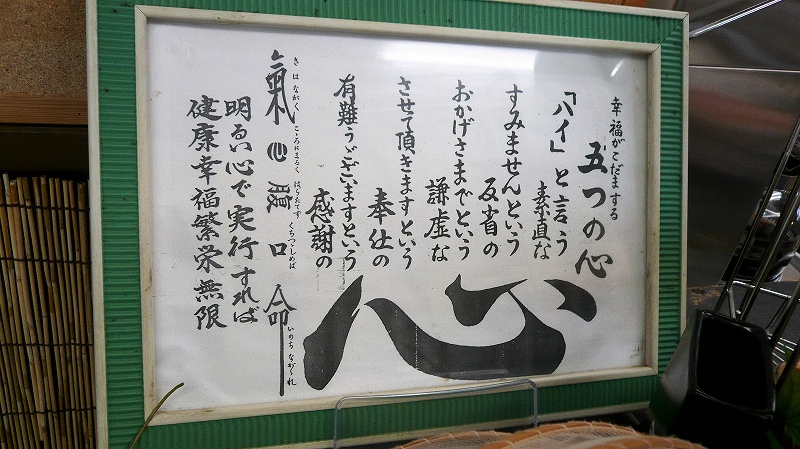 幸福がこだまする
五つの心
「ハイ」と言う
素直な
すみませんという
反省の
おかげさまでという
謙虚な
させて頂きますという
奉仕の
有難うございますという
感謝の
心
氣心腹口命
きはながく こころはまるく はらたてず くちつつしめば いのちながかれ
明るい心で実行すれば
健康幸福繁栄無限